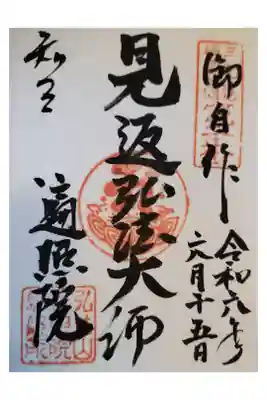 御自作
令和六年
六月十五日
見返弘法大師
知立
遍照院